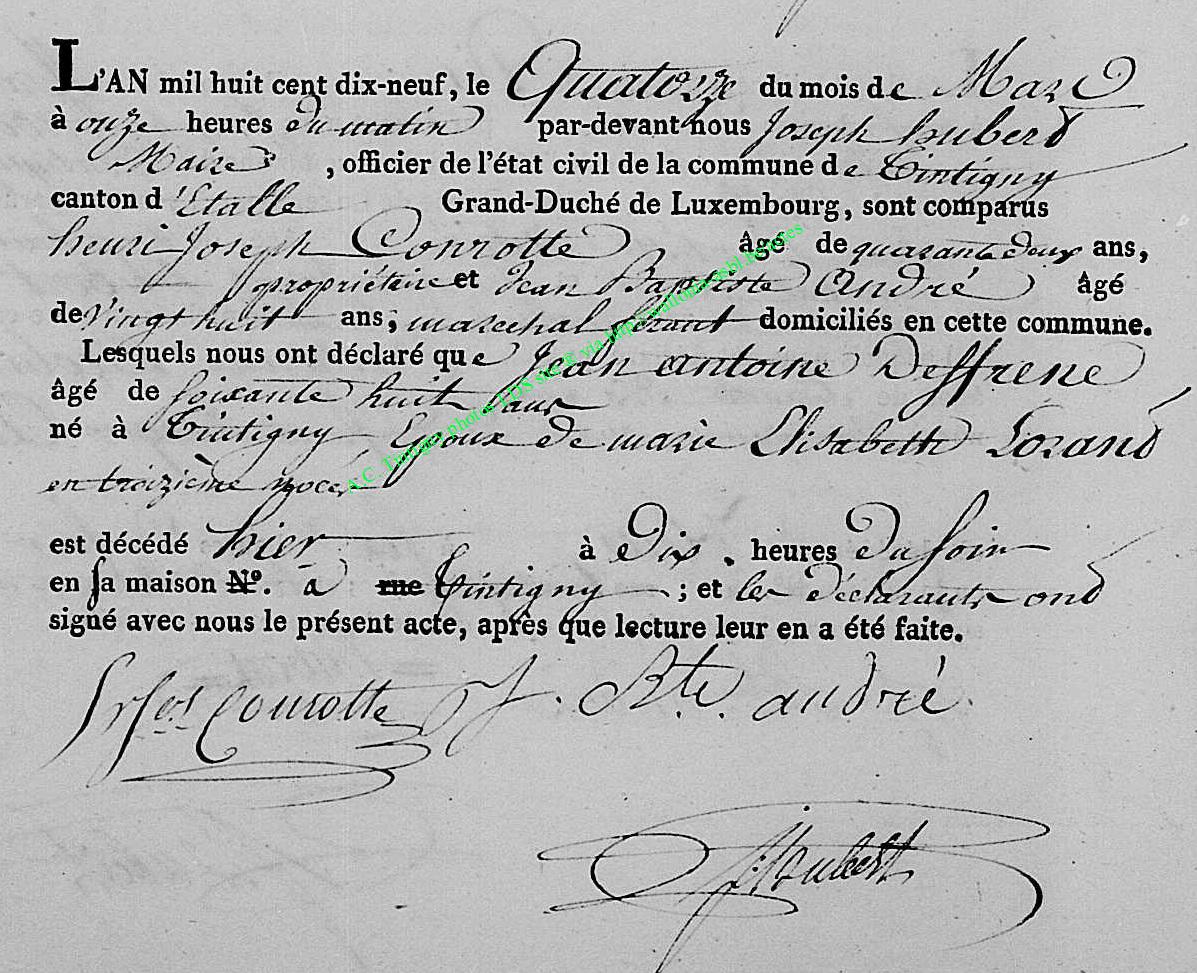 L'AN mil huit cent dix-neuf, le Quatorze du mois de Mars
à onze heures du matin par-devant nous Joseph hubert
Maire, officier de l'état civil de la commune de Tintigny
canton d'Etalle Grand-Duché de Luxembourg, sont comparus
henri Joseph Conrotte âgé de quarante deux ans,
propriétaire et Jean Baptiste André âgé
de Vingt huit ans, marechal ferant domiciliés en cette commune.
Lesquels nous ont déclaré que Jean antoine Deffrene
âgé de soixante huit ans
né à Tintigny Epoux de marie Elisabeth Lorand
en troizième noces
est décédé hier à Dix heures du soir
en sa maison N°. a rue Tintigny ; et les déclarants ont
signé avec nous le présent acte, après que lecture leur en a été faite.
Conrotte J. Bte. andré
J. Hubert
A.C. Tintigny photos